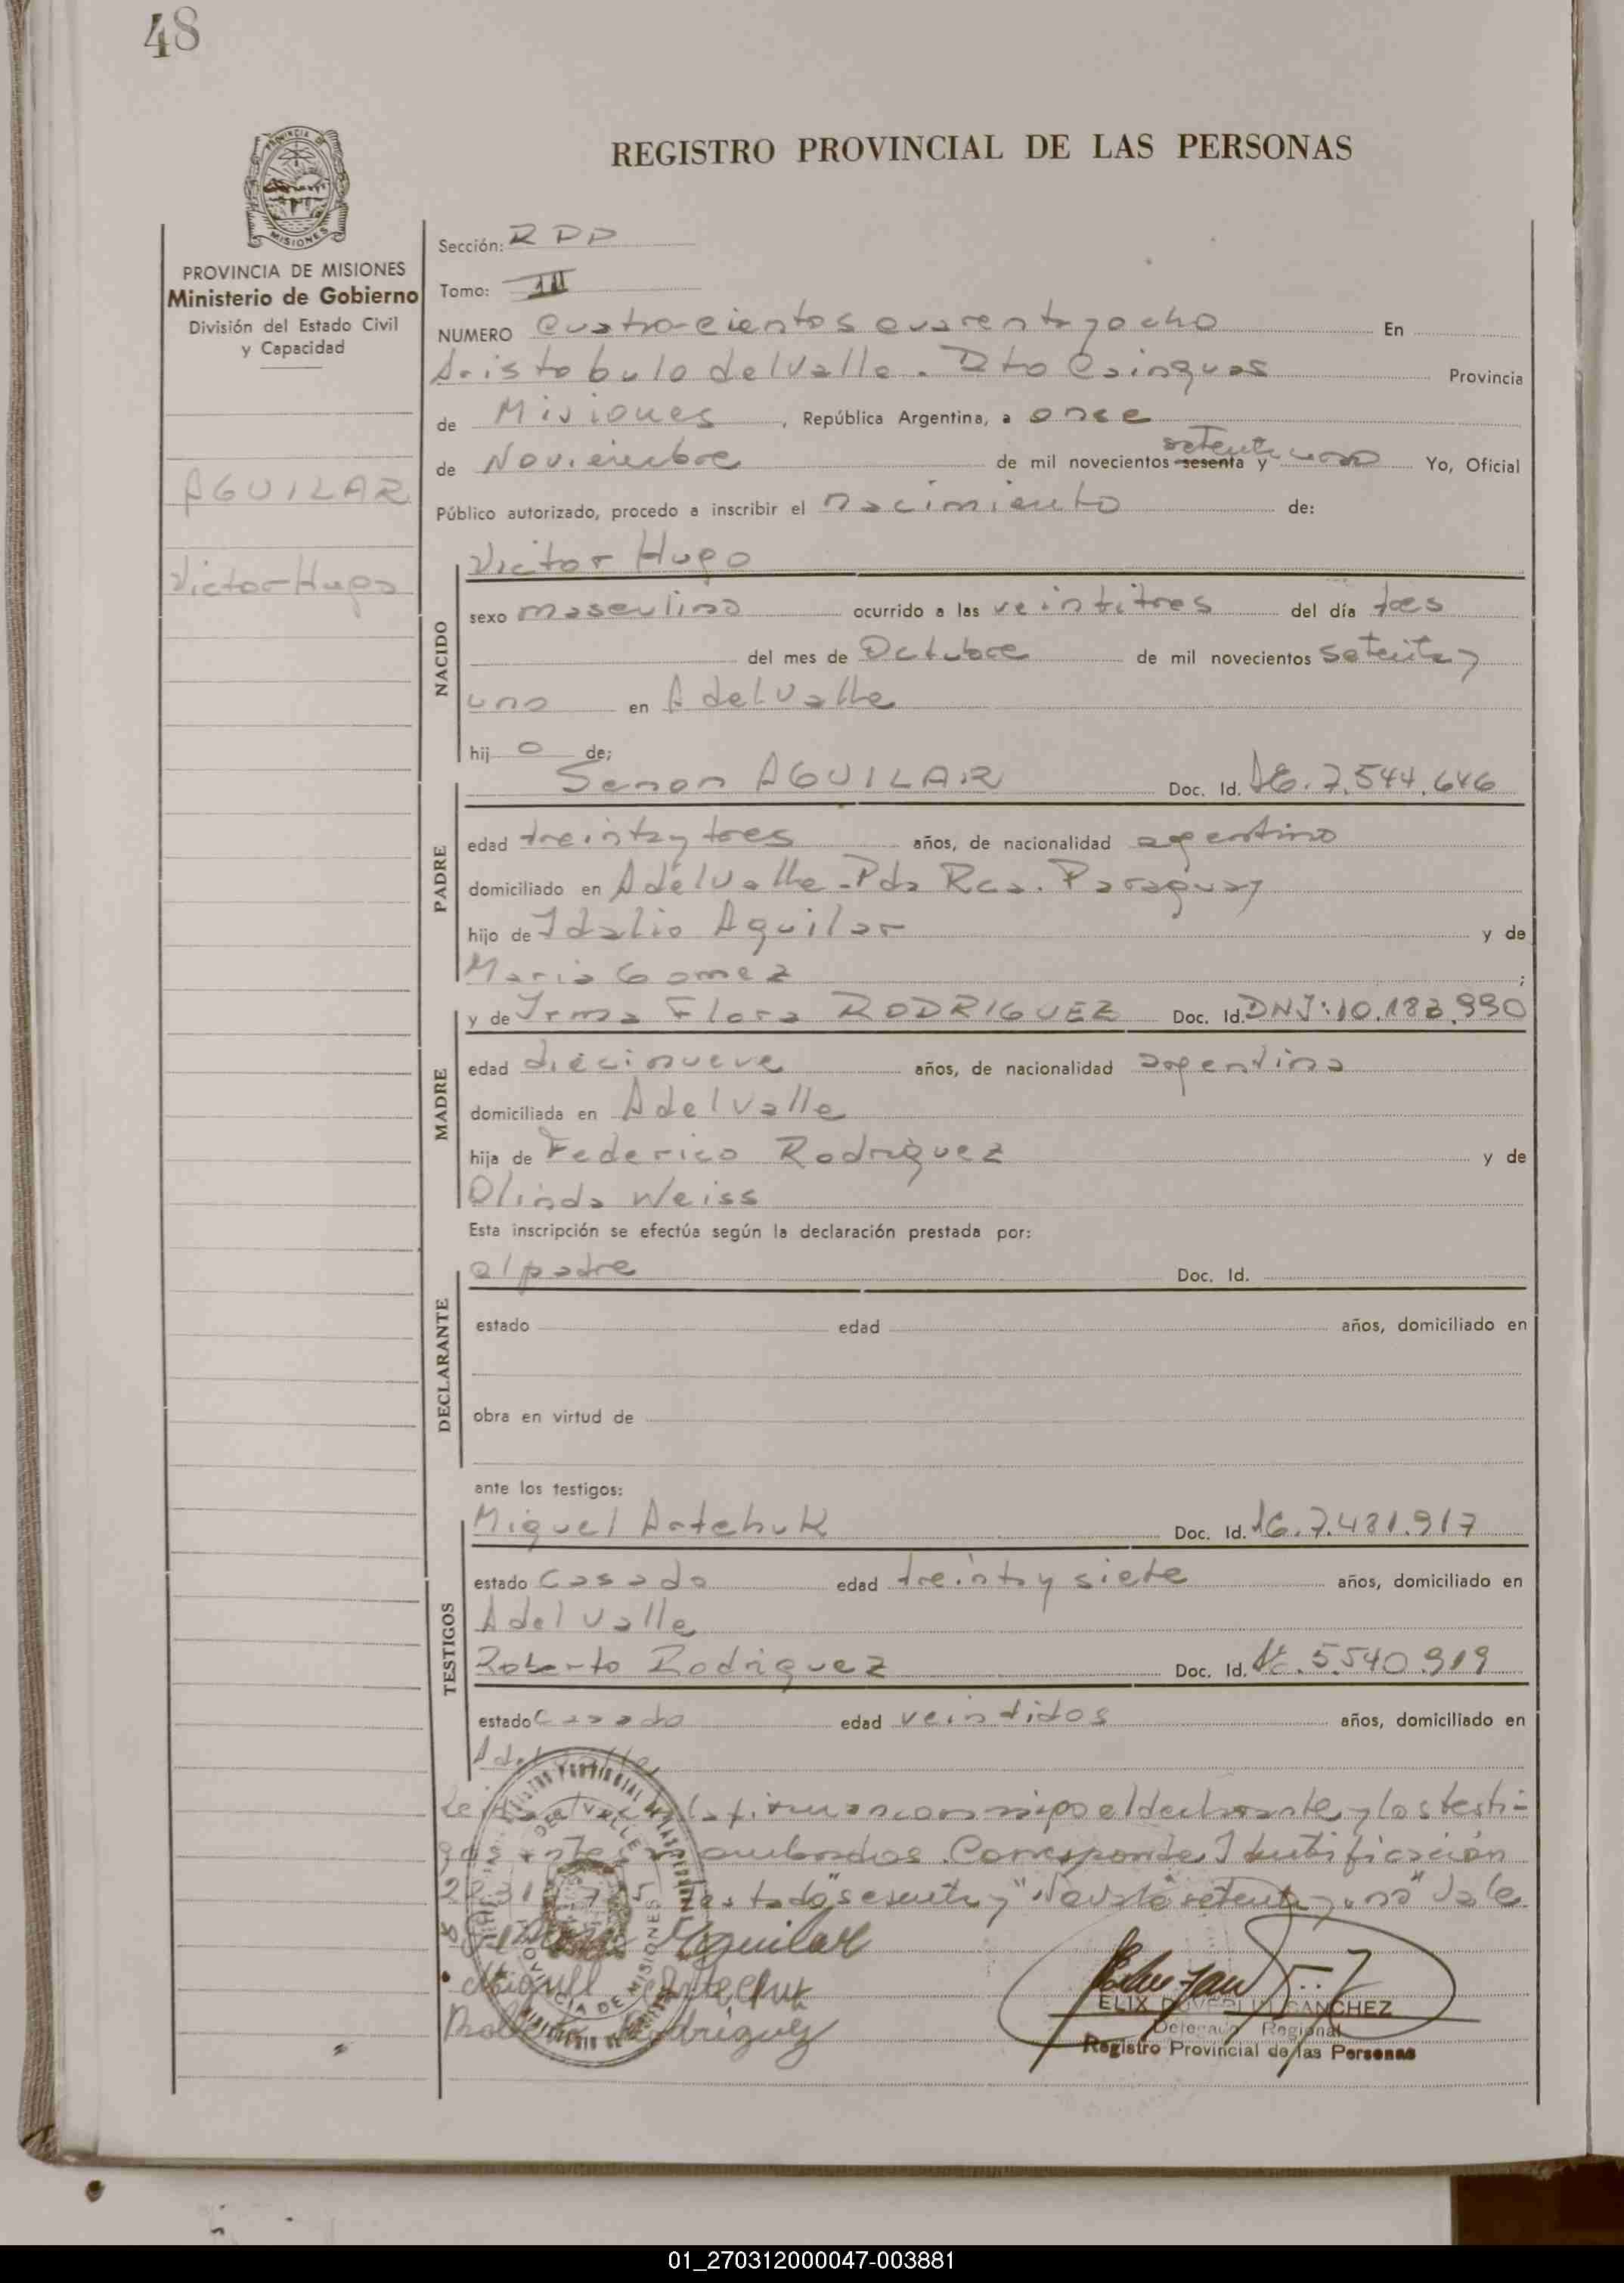 48
REGISTRO PROVINCIAL DE LAS PERSONAS
PROVINCIA DE MISIONES
Ministerio de Gobierno
División del Estado Civil
y Capacidad
AGUILAR
Victor Hugo
Sección: RDD
Tomo: III
NUMERO Cuatrocientos cuarenta y ocho En
Aristobulo del Valle. Dto Cainguas Provincia
de Misiones, República Argentina, a once
setenta
de Noviembre de mil novecientos sesenta y uno Yo, Oficial
Público autorizado, procedo a inscribir el nacimiento de:
NACIDO
Victor Hugo
sexo masculino ocurrido a las veintitres del día tres
del mes de Octubre de mil novecientos setenta y
uno en A del Valle
hijo de;
PADRE
AGUILAR Doc. Id. 7.544.646
edad treinta y tres años, de nacionalidad argentino
domiciliado en A del Valle - Pda Rca. Paraguay
hijo de Idalio Aguilar y de
Maria Gomez ;
MADRE
y de Irma Flora RODRIGUEZ Doc. Id. DNI: 10.183.990
edad diecinueve años, de nacionalidad argentina
domiciliada en A del Valle
hija de Federico Rodriguez y de
Olinda Weiss
Esta inscripción se efectúa según la declaración prestada por:
DECLARANTE
el padre Doc. Id.
estado edad años, domiciliado en
obra en virtud de
ante los testigos:
TESTIGOS
Miguel Artchuk Doc. Id. 7.481.917
estado Casado edad treinta y siete años, domiciliado en
A del Valle
Roberto Rodriguez Doc. Id. 5.540.919
estado Casado edad veintidos años, domiciliado en
A del Valle
Leida el acta la firman conmigo el declarante y los testi-
gos antes nombrados. Corresponde Identificación
testado "sesenta y" "setenta y uno" Vale
Aguilar
Miguel Artechuk
Roberto Rodriguez
SANCHEZ
Delegado Regional
Registro Provincial de las Personas
01_270312000047-003881